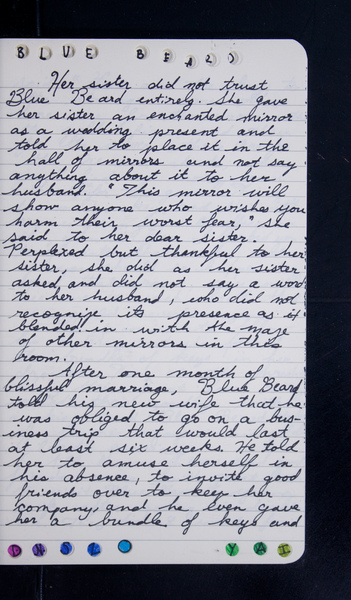 BLUE BEARD
Her sister did not trust
Blue Beard entirely. She gave
her sister an enchanted mirror
as a wedding present and
told her to place it in the
hall of mirrors and not say
anything about it to her
husband. "This mirror will
show anyone who wishes you
harm their worst fear," she
said to her dear sister.
Perplexed but thankful to her
sister, she did as her sister
asked and did not say a word
to her husband, who did not
recognize its presence as it
blended in with the maze
of other mirrors in this
room.
After one month of
blissful marriage, Blue Beard
told his new wife that he
was obliged to go on a bus-
iness trip that would last
at least six weeks. He told
her to amuse herself in
his absence, to invite good
friends over to keep her
company, and he even gave
her a bundle of keys and